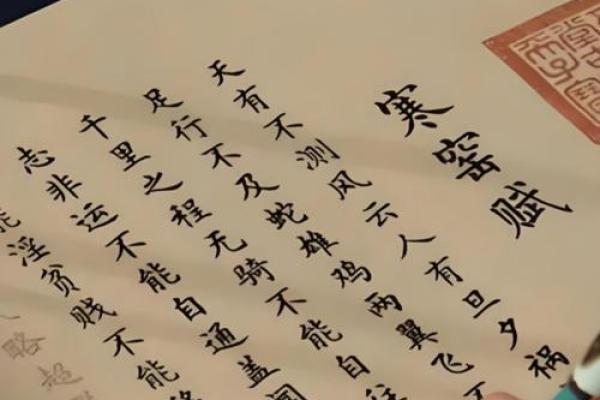 寒窑赋
天有不测风云人有旦夕祸
足行不及蛇雄鸡两翼飞不
千里之程无骑不能自往
志非运不能自通盖闻
能淫贫贱不能移
略超